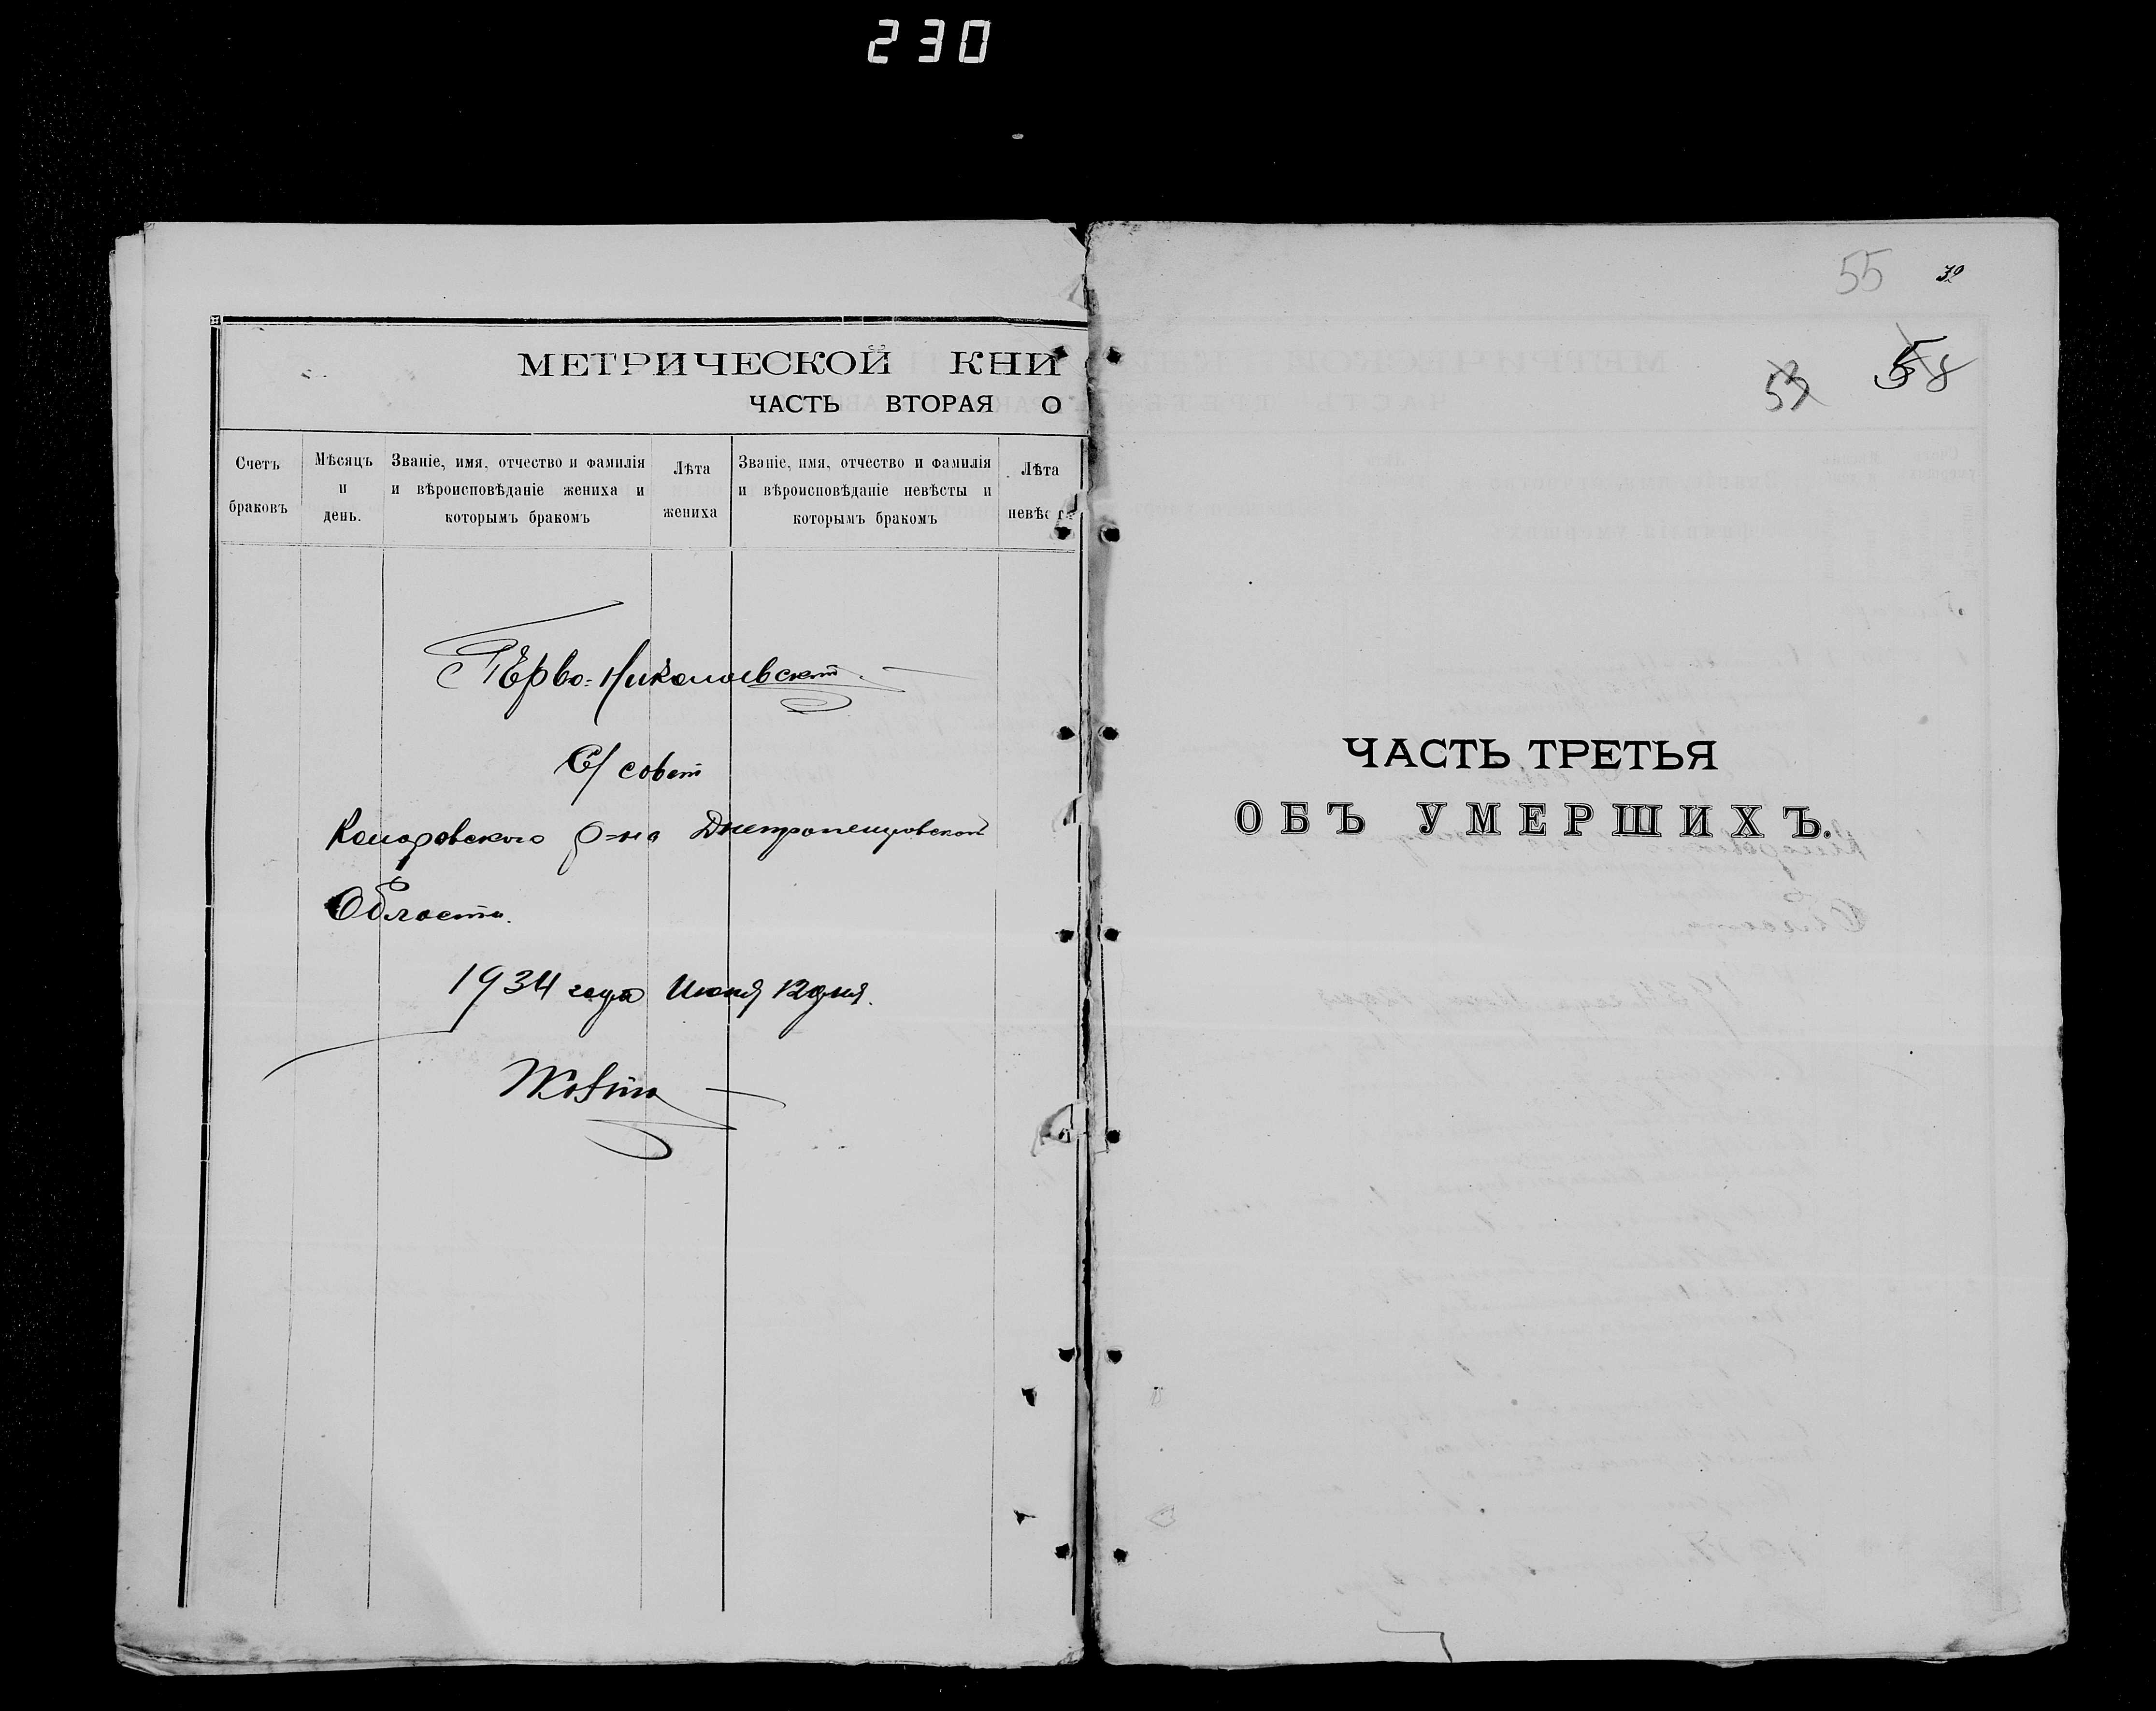 230
МЕТРИЧЕСКОЙ КНИ
ЧАСТЬ ВТОРАЯ О
Счетъ браковъ
Мѣсяцъ и день.
Званіе, имя, отчество и фамилія и вѣроисповѣданіе жениха и которымъ бракомъ
Лѣта жениха
Званіе, имя, отчество и фамилія и вѣроисповѣданіе невѣсты и которымъ бракомъ
Лѣта невѣс
Перво-Николаевский
С/ совет
Комаровского р-на Днепропетровской
Области.
1934 года Июня 12 дня.
55
39
53
58
ЧАСТЬ ТРЕТЬЯ
ОБЪ УМЕРШИХЪ.